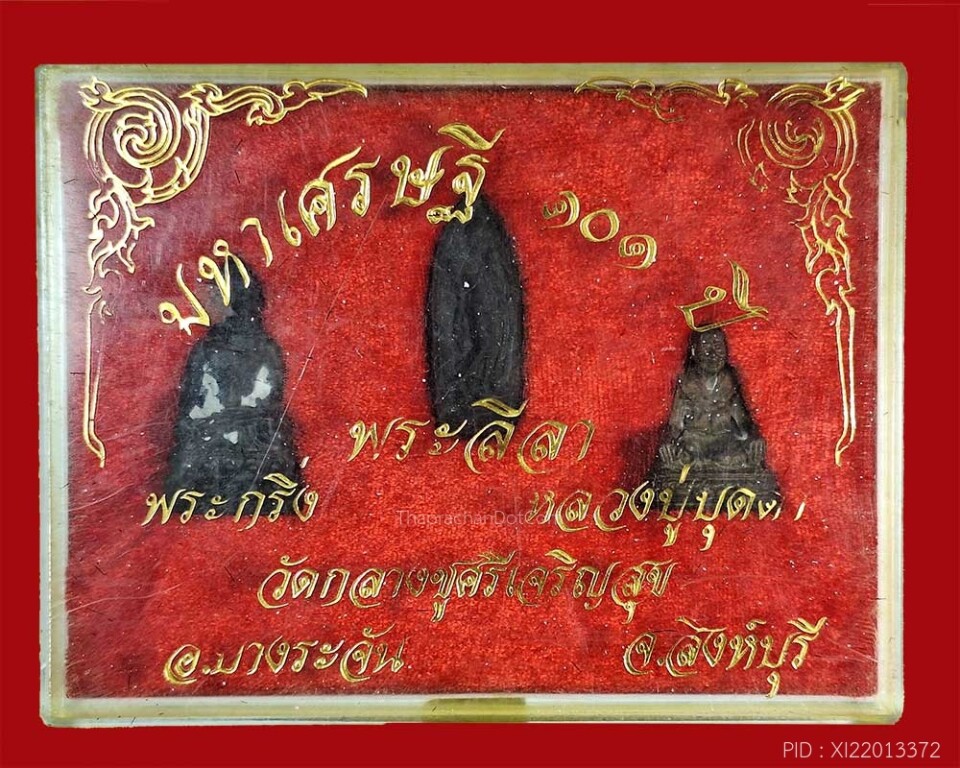 มหาเศรษฐี ๑๐๑ ปี
พระลีลา
พระกริ่ง
หลวงปู่บุดดา
ThaprachanDot
วัดกลางชูศรีเจริญสุข
อ.บางระจัน จ.สิงห์บุรี
PID : XI22013372